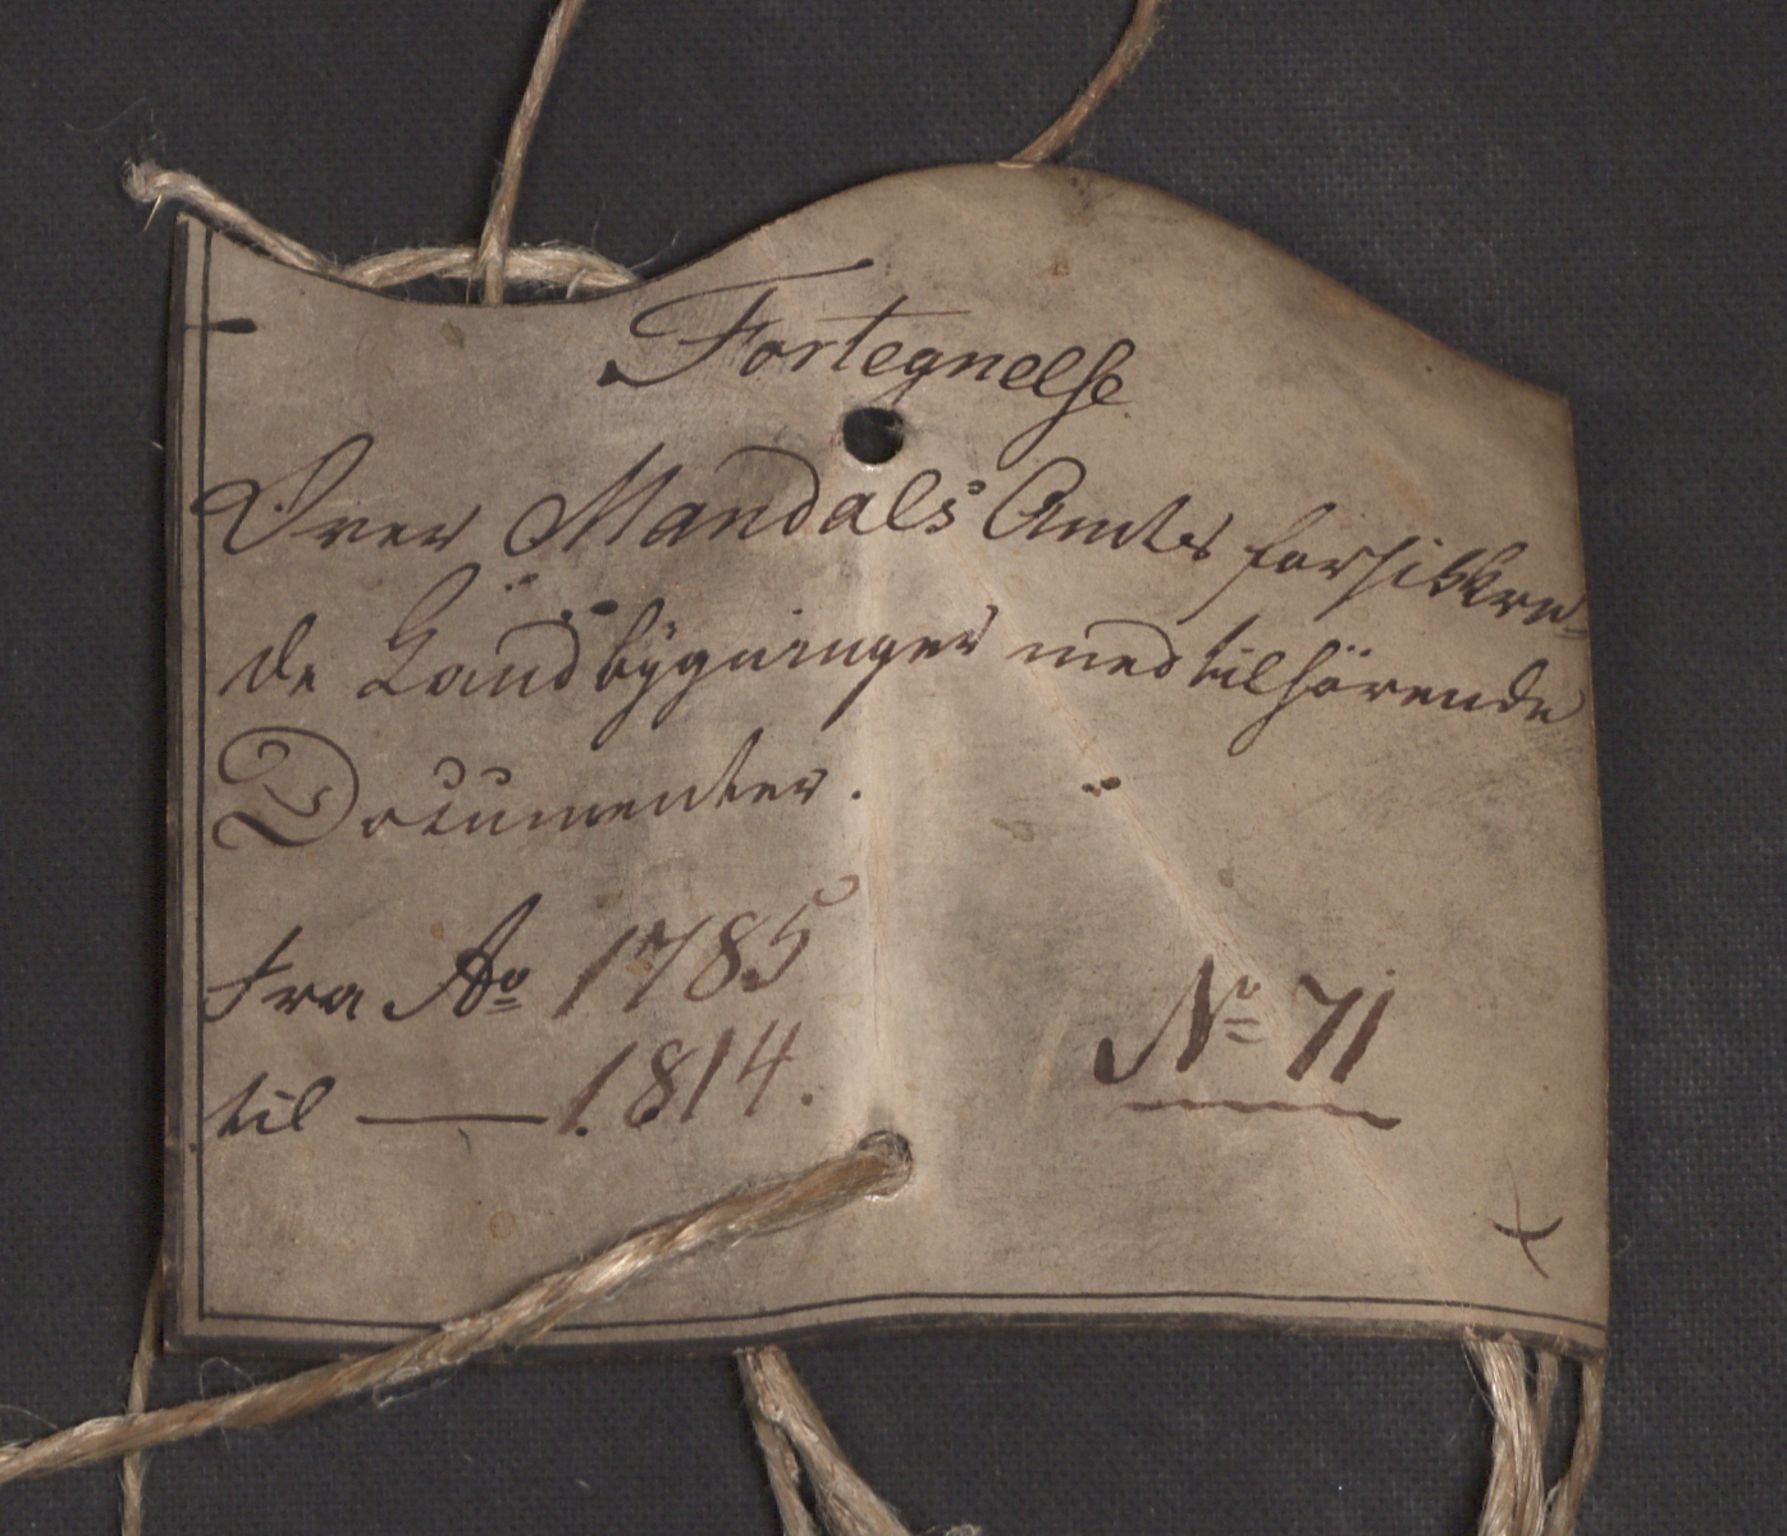 Fortegnelse
Over Mandals Amts forsikkre-
de Landbÿgninger med tilhörende
Documenter.
fra Ao 1785
til — 1814.
No 71